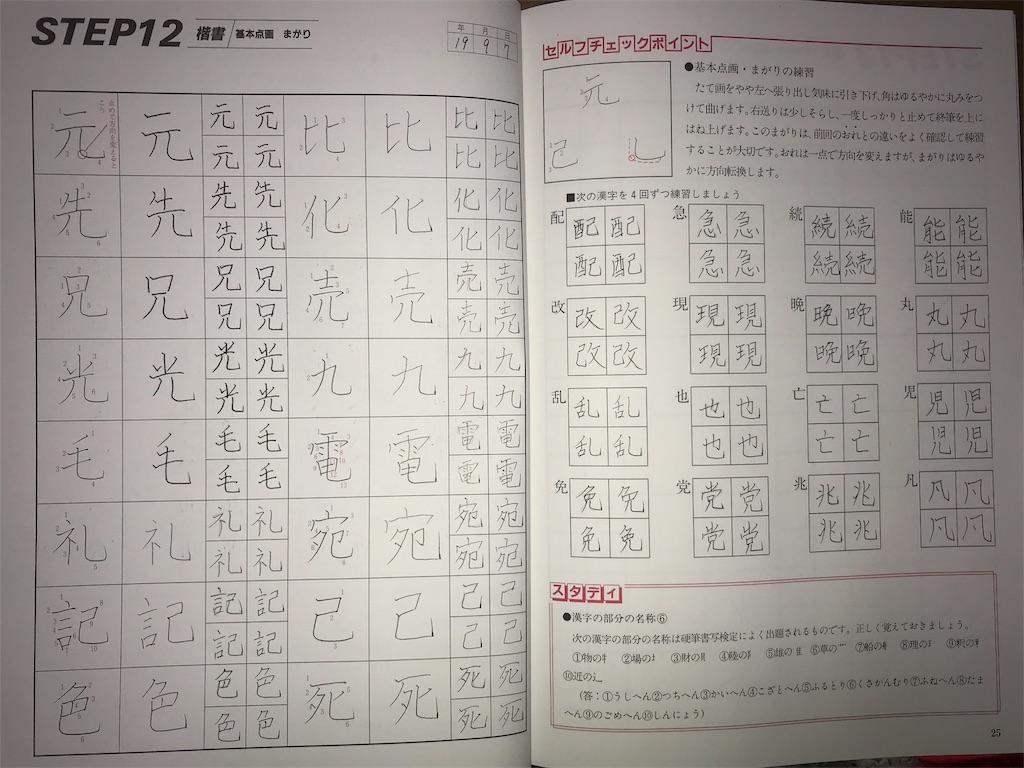 STEP12 楷書 基本点画 まがり
年 月 日
19 9 7
元 元 元 元 比 比 比 比
元 元 比 比
先 先 先 先 化 化 化 化
先 先 化 化
兄 兄 兄 兄 売 売 売 売
兄 兄 売 売
光 光 光 光 九 九 九 九
光 光 九 九
毛 毛 毛 毛 電 電 電 電
毛 毛 電 電
礼 礼 礼 礼 宛 宛 宛 宛
礼 礼 宛 宛
記 記 記 記 己 己 己 己
記 記 己 己
色 色 色 色 死 死 死 死
色 色 死 死
セルフチェックポイント
元
己 乚
●基本点画・まがりの練習
たて画をやや左へ張り出し気味に引き下げ、角はゆるやかに丸みをつ
けて曲げます。右送りは少しそらし、一度しっかりと止めて終筆を上に
はね上げます。このまがりは、前回のおれとの違いをよく確認して練習
することが大切です。おれは一点で方向を変えますが、まがりはゆるや
かに方向転換します。
■次の漢字を4回ずつ練習しましょう
配 配 配 急 急 急 続 続 続 能 能 能
配 配 急 急 続 続 能 能
改 改 改 現 現 現 晩 晩 晩 丸 丸 丸
改 改 現 現 晩 晩 丸 丸
乱 乱 乱 也 也 也 亡 亡 亡 児 児 児
乱 乱 也 也 亡 亡 児 児
免 免 免 党 党 党 兆 兆 兆 凡 凡 凡
免 免 党 党 兆 兆 凡 凡
スタディ
●漢字の部分の名称⑥
次の漢字の部分の名称は硬筆書写検定によく出題されるものです。正しく覚えておきましょう。
①物の牜 ②場の土 ③財の貝 ④陸の阝 ⑤雄の隹 ⑥草の艹 ⑦船の舟 ⑧理の王 ⑨釈の釆
⑩近の辶
(答:①うしへん②つちへん③かいへん④こざとへん⑤ふるとり⑥くさかんむり⑦ふねへん⑧たま
へん⑨のごめへん⑩しんにょう)
25